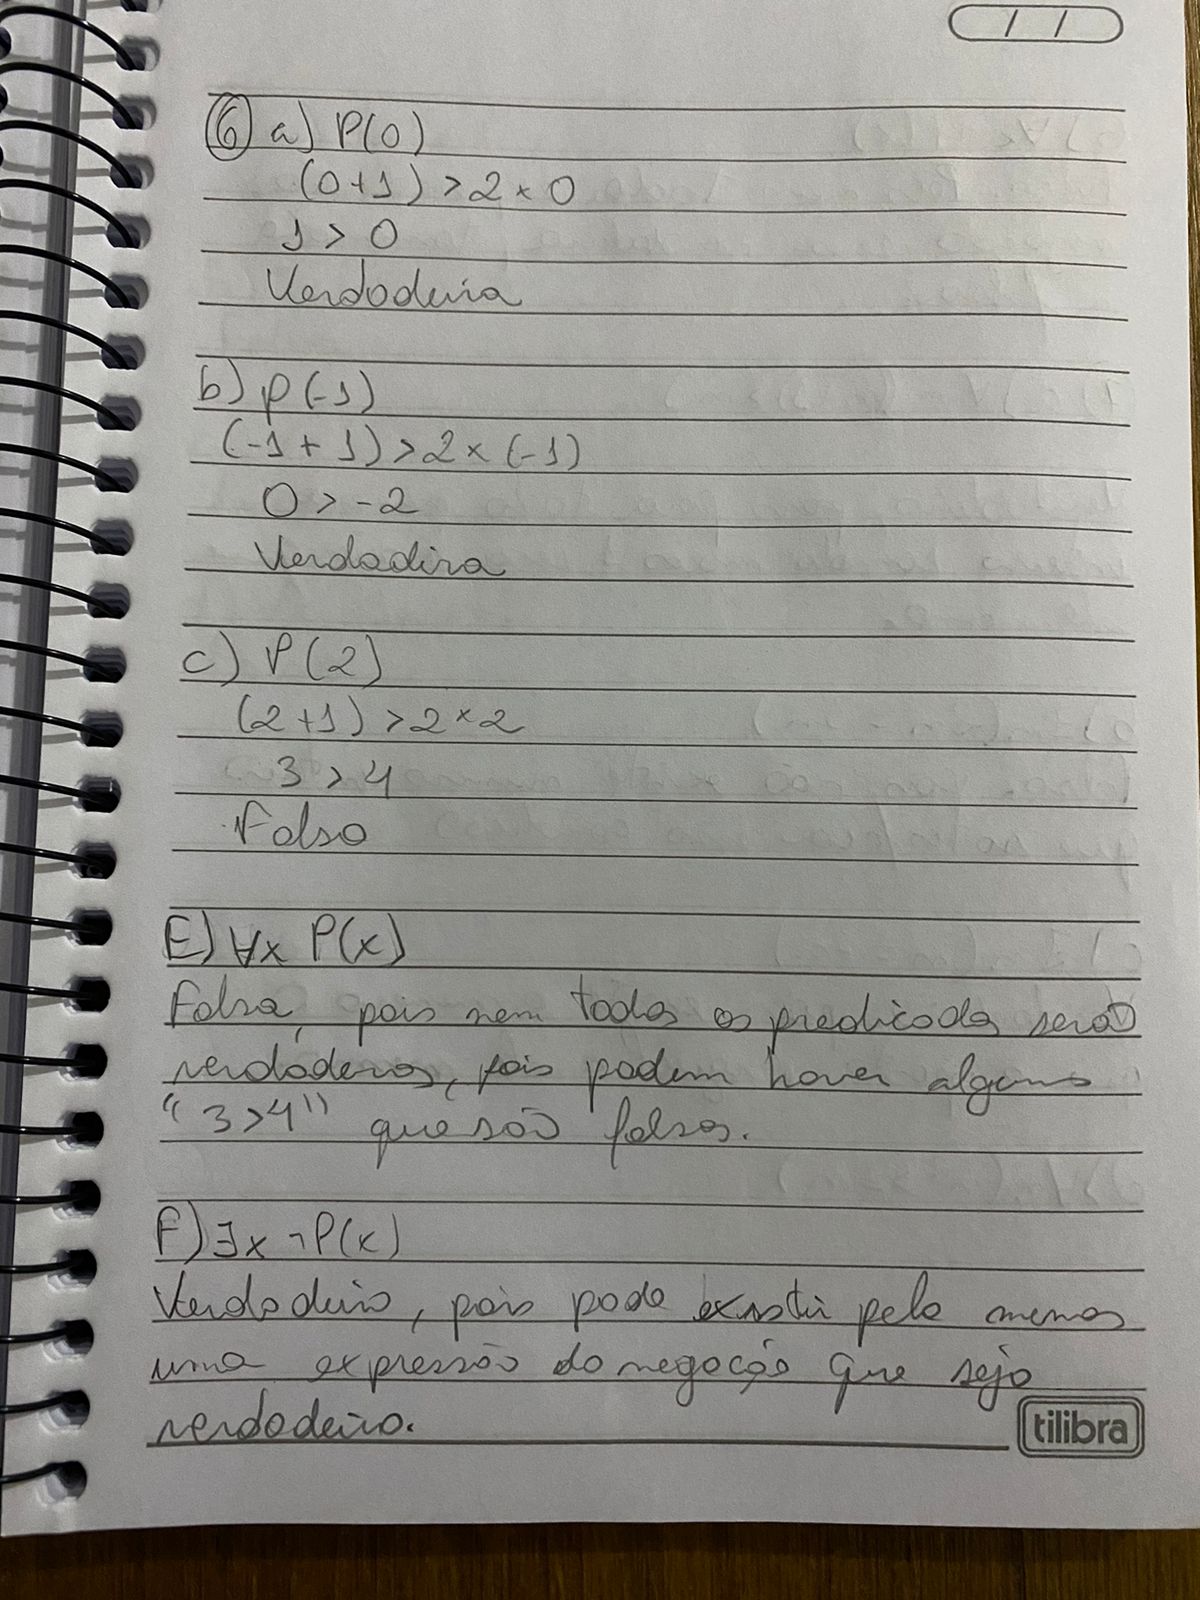 / /
6 a) P(0)
(0+1) > 2 × 0
1 > 0
Verdadeira
b) P(-1)
(-1 + 1) > 2 × (-1)
0 > -2
Verdadira
c) P(2)
(2+1) > 2 × 2
3 > 4
Falso
E) ∀x P(x)
Falsa, pois nem todos os predicados serão
verdaderos, pois podem haver alguns
"3>4" que são falsos.
F) ∃x ¬P(x)
Verdadeiro, pois pode existir pelo menos
uma expressão da negação que seja
verdadeiro.
tilibra